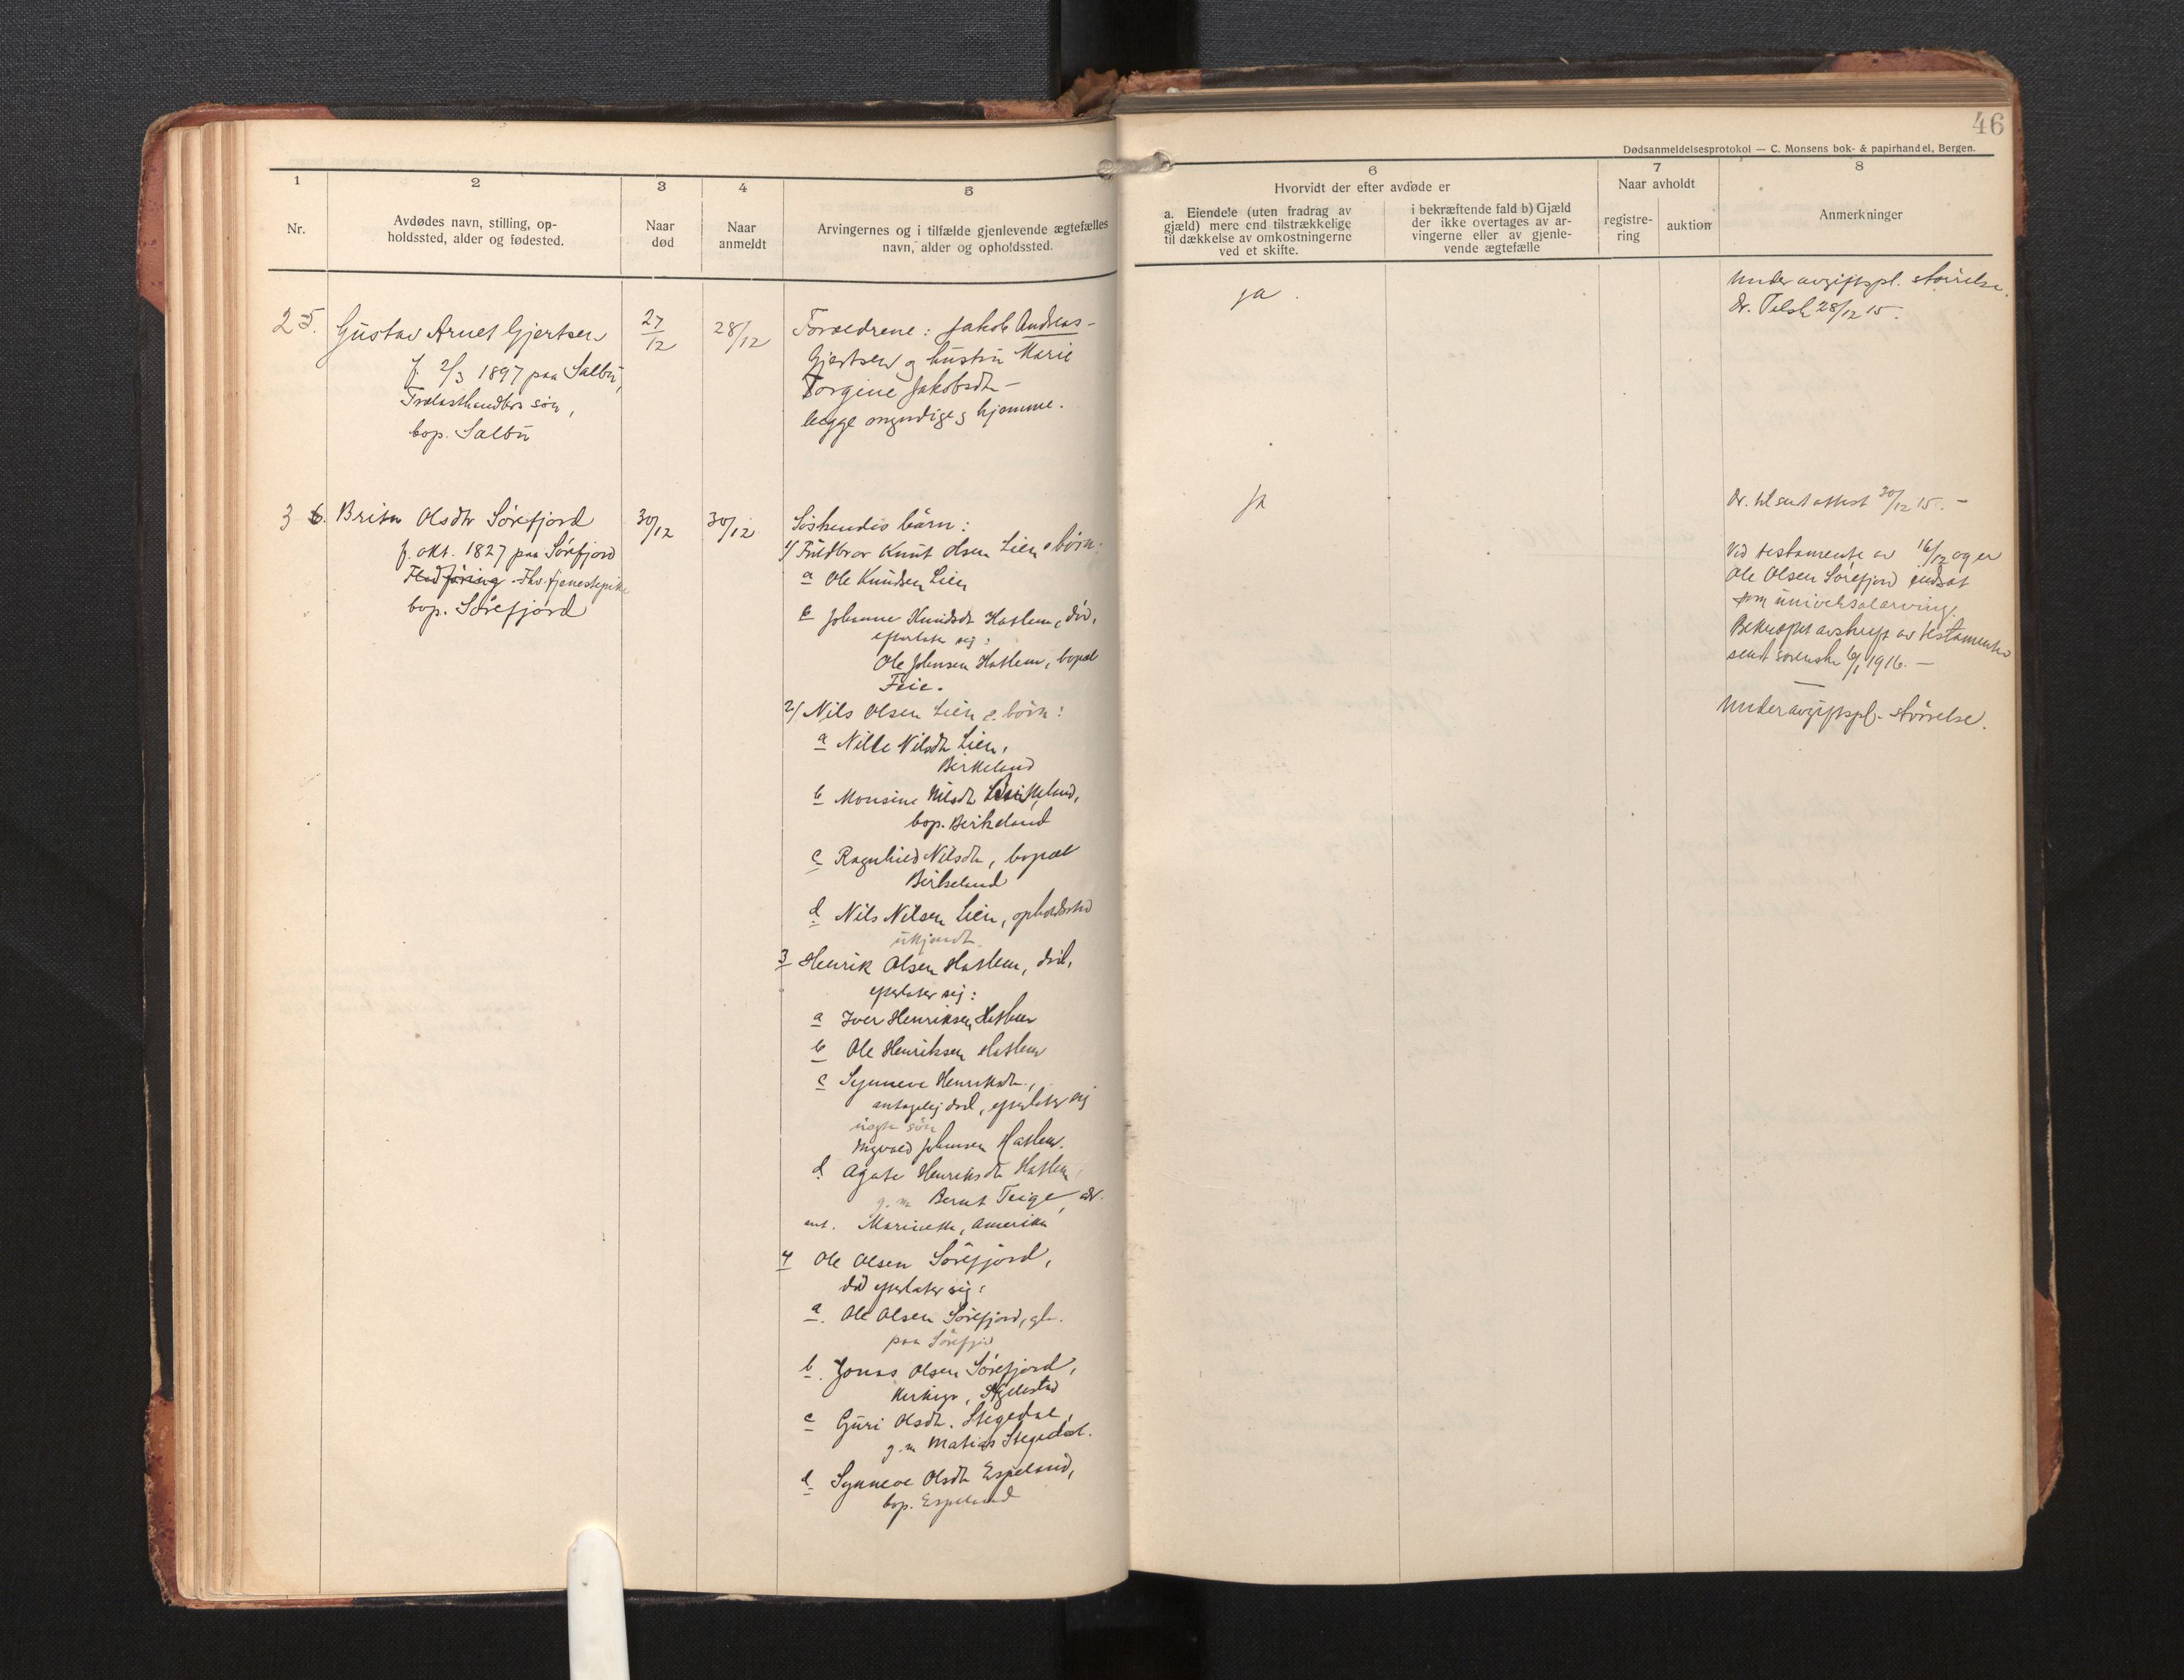 46
Dødsanmeldelsesprotokol — C. Monsens bok- & papirhandel, Bergen.
1
2
3
4
5
6
7
8
Nr.
Avdødes navn, stilling, op-
holdssted, alder og fødested.
Naar
død
Naar
anmeldt
Arvingernes og i tilfælde gjenlevende ægtefælles
navn, alder og opholdssted.
Hvorvidt der efter avdøde er
a. Eiendele (uten fradrag av
gjæld) mere end tilstrækkelige
til dækkelse av omkostningerne
ved et skifte.
i bekræftende fald b) Gjæld
der ikke overtages av ar-
vingerne eller av gjenle-
vende ægtefælle
Naar avholdt
registre-
ring
auktion
Anmerkninger
25. Gustav Arnet Gjertsen
f. 2/3 1897 paa Salbu,
Trælasthandlers søn,
bop. Salbu
27/12
28/12
Forældrene: Jakob Andreas
Gjertsen og hustru Marie
Torgine Jakobsdtr
begge myndige, hjemme.
ja
Under avgiftspl. størrelse.
28/12 15.
36. Brita Olsdtr Sørefjord
f. okt. 1827 paa Sørefjord
Fhv. tjenestepike
bop. Sørefjord
30/12
30/12
Søskendes børn:
1/ Fuldbror Knut Olsen Lien e børn:
a Ole Knudsen Lien
b Johanne Knudsdt Hatlem, død,
efterlater sig:
Ole Johnsen Hatlem, bopæl
Feie.
2/ Nils Olsen Lien e. børn:
a Nille Nilsdtr Lien,
Birkeland
b Monsine Nilsdtr Birkeland,
bop. Birkeland
c Ragnhild Nilsdtr, bopæl
Birkeland
d Nils Nilsen Lien, opholdssted
ukjendt
3 Henrik Olsen Hatlem, død,
efterlater sig:
a Iver Henriksen Hatlem
b Ole Henriksen Hatlem
c Synneve Henriksdtr,
antagelig død, efterlater sig
uegte søn
Johnsen Hatlem.
d Agate Henriksdtr Hatlem
g. m. Bernt Teige, adr.
Marinette, Amerika
4 Ole Olsen Sørefjord,
død efterlater sig:
a. Ole Olsen Sørefjord, gbr.
paa Sørefjord
b. Jonas Olsen Sørefjord,
c Guri Olsdtr. Stegedal,
g. m Matias Stegedal.
d Synneve Olsdtr Espeland,
bop. Espeland
ja
Dr. tilsendt attest 30/12 15. —
Ved testamente av 16/12 og er
Ole Olsen Sørefjord indsat
som universalarving.
Bekræftet avskrift av testamentet
sendt sorenskr 6/1 1916. —
Under avgiftspl. størrelse.